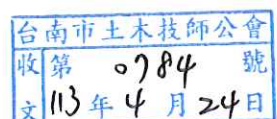 台南市土木技師公會
收文 第 0784 號
113年4月24日